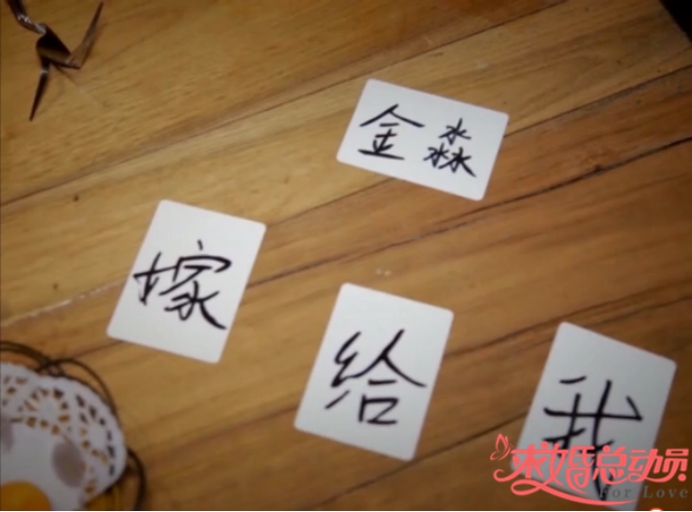 金淼
嫁
给
我
求婚总动员
For Love